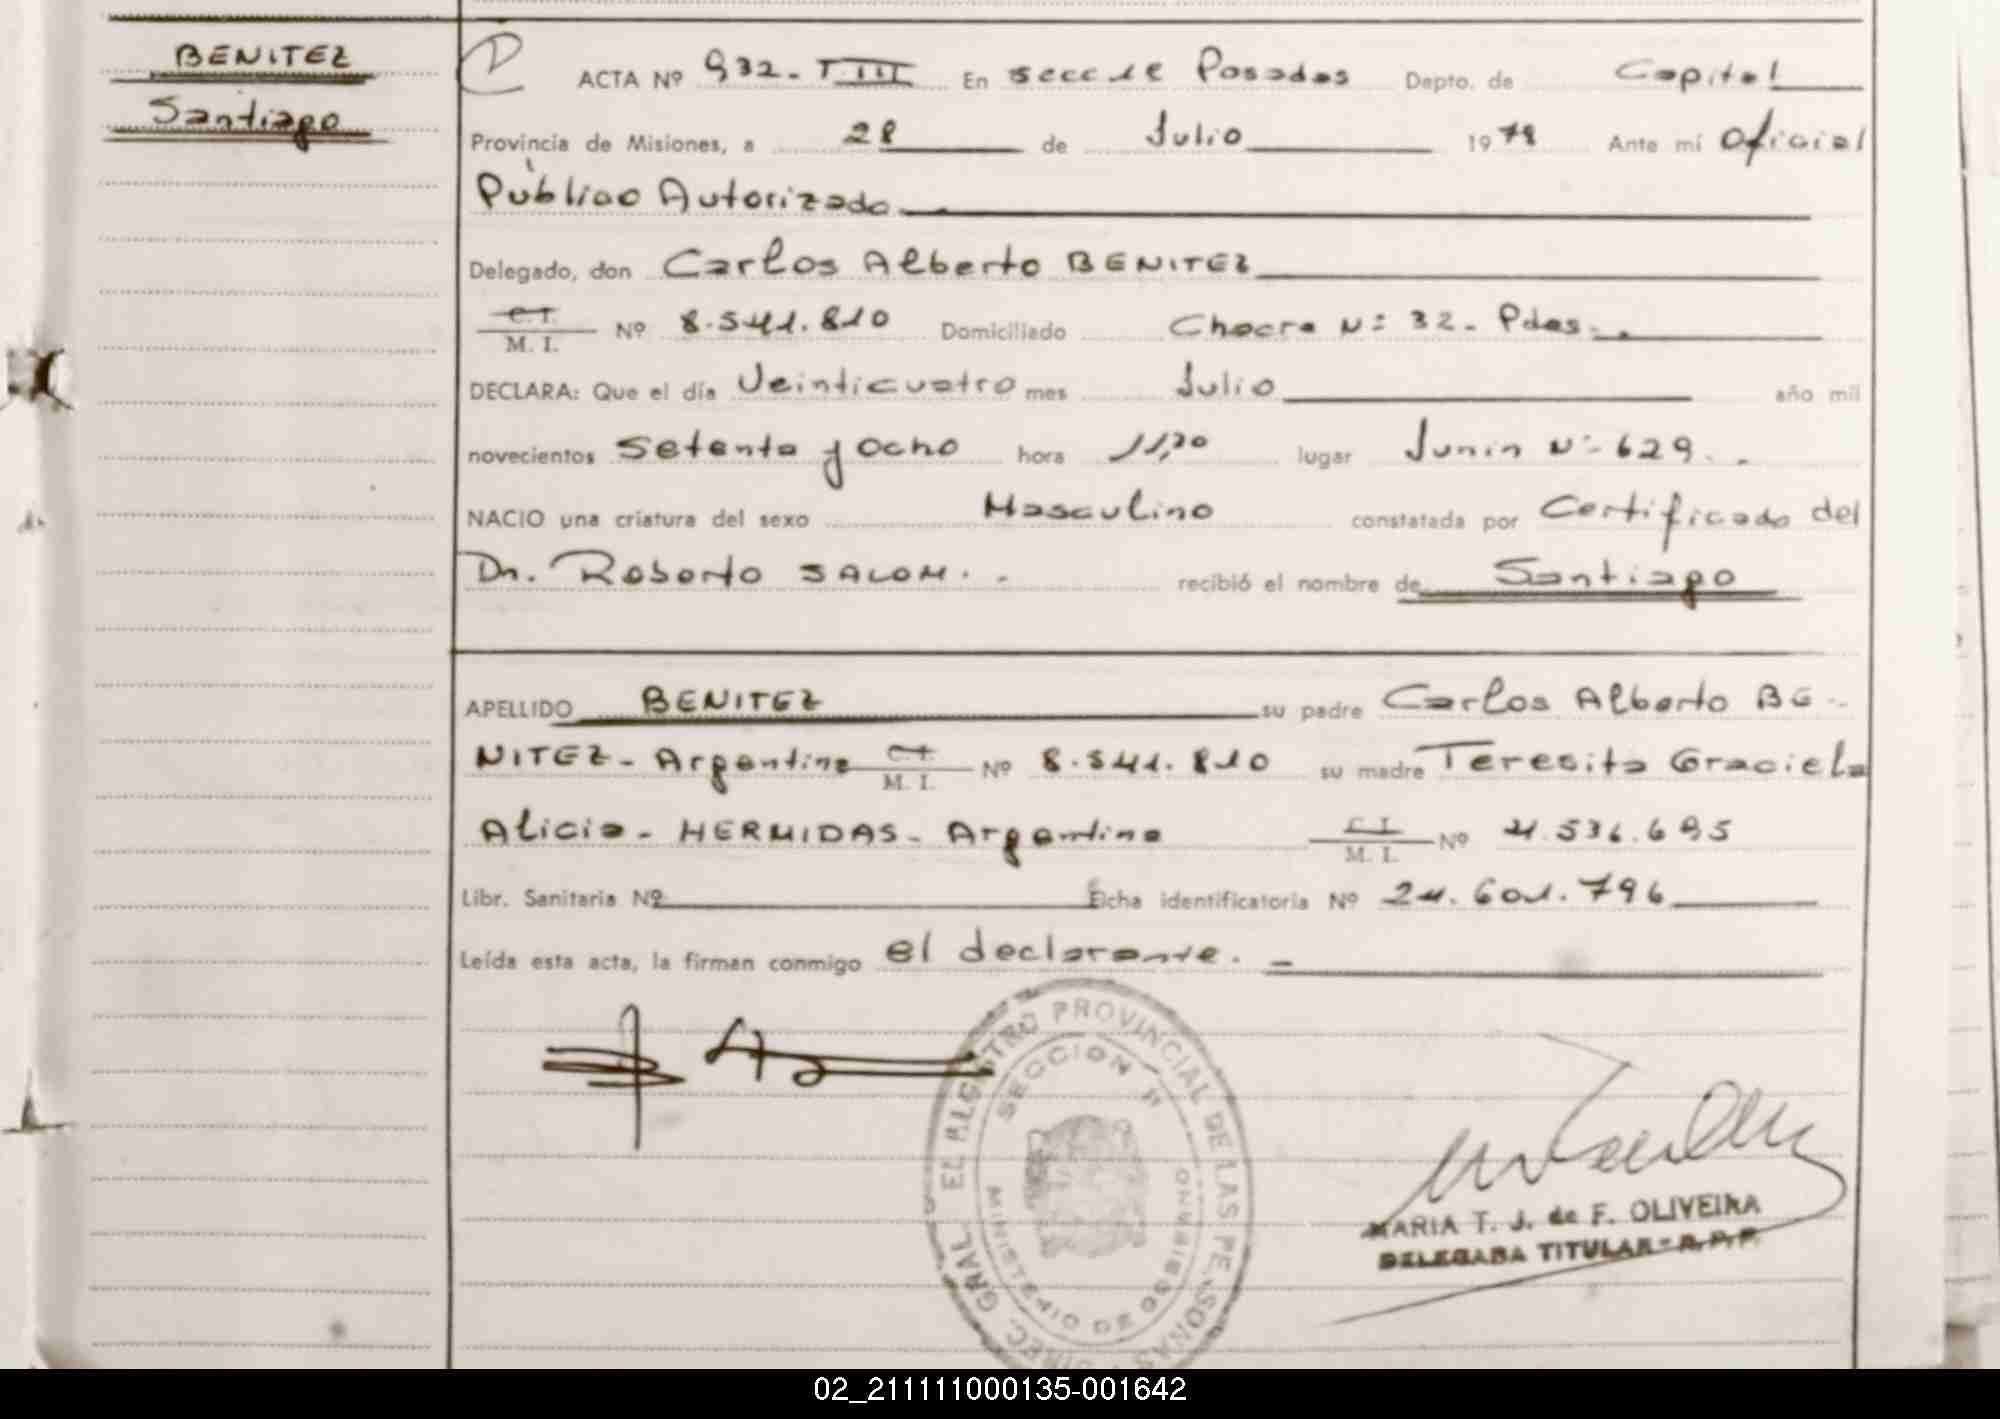 BENITEZ
Santiago
ACTA Nº 932 - T III En secc 1ª Posadas Depto. de Capital
Provincia de Misiones, a 28 de Julio 1978 Ante mí Oficial
Público Autorizado
Delegado, don Carlos Alberto BENITEZ
C. I.
M. I. Nº 8.541.810 Domiciliado Chacra Nº 32 - Pdas.
DECLARA: Que el día Veinticuatro mes Julio año mil
novecientos Setenta y Ocho hora 11,20 lugar Junin Nº 629.
NACIO una criatura del sexo Masculino constatada por Certificado del
Dr. Roberto SALOM. recibió el nombre de Santiago
APELLIDO BENITEZ su padre Carlos Alberto BE-
NITEZ - Argentino C. I. M. I. Nº 8.541.810 su madre Teresita Graciela
Alicia - HERMIDAS - Argentina C. I. M. I. Nº 4.536.695
Libr. Sanitaria Nº Ficha identificatoria Nº 24.601.796
Leída esta acta, la firman conmigo el declarante.
DIREC. GRAL. EL REGISTRO PROVINCIAL DE LAS PERSONAS
SECCION
MINISTERIO DE GOBIERNO
MARIA T. J. de F. OLIVEIRA
DELEGADA TITULAR - R.P.P.
02_211111000135-001642